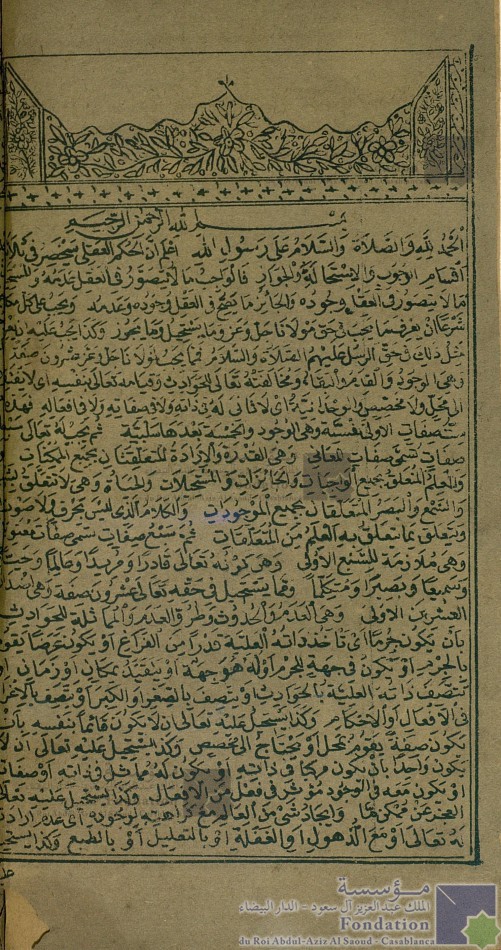 بسم الله الرحمن الرحيم
الحمد لله والصلاة والسلام على رسول الله اعلم ان الحكم العقلي ينحصر في ثلاثة
اقسام الوجوب والاستحالة والجواز فالواجب ما لا يتصور في العقل عدمه والمستحيل
ما لا يتصور في العقل وجوده والجائز ما يصح في العقل وجوده وعدمه ويجب على كل مكلف
شرعا ان يعرف ما يجب في حق مولانا جل وعز وما يستحيل وما يجوز وكذا يجب عليه ان يعرف
مثل ذلك في حق الرسل عليهم الصلاة والسلام فمما يجب لمولانا جل وعز عشرون صفة
وهي الوجود والقدم والبقاء ومخالفته تعالى للحوادث وقيامه تعالى بنفسه اي لا يفتقر
الى محل ولا مخصص والوحدانية اي لا ثاني له في ذاته ولا في صفاته ولا في افعاله فهذه
ست صفات الاولى نفسية وهي الوجود والخمسة بعدها سلبية ثم يجب له تعالى سبع
صفات تسمى صفات المعاني وهي القدرة والارادة المتعلقتان بجميع الممكنات
والعلم المتعلق بجميع الواجبات والجائزات والمستحيلات والحياة وهي لا تتعلق بشيء
والسمع والبصر المتعلقان بجميع الموجودات والكلام الذي ليس بحرف ولا صوت
ويتعلق بما يتعلق به العلم من المتعلقات ثم سبع صفات تسمى صفات معنوية
وهي ملازمة للسبع الاولى وهي كونه تعالى قادرا ومريدا وعالما وحيا
وسميعا وبصيرا ومتكلما ومما يستحيل في حقه تعالى عشرون صفة وهي اضداد
العشرين الاولى وهي العدم والحدوث وطرو العدم والمماثلة للحوادث
بان يكون جرما اي تاخذ ذاته العلية قدرا من الفراغ او يكون عرضا يقوم
بالجرم او يكون في جهة للجرم او له هو جهة او يتقيد بمكان او زمان او
تتصف ذاته العلية بالحوادث او يتصف بالصغر او الكبر او يتصف بالاغراض
في الافعال او الاحكام وكذا يستحيل عليه تعالى ان لا يكون قائما بنفسه بان
يكون صفة يقوم بمحل او يحتاج الى مخصص وكذا يستحيل عليه تعالى ان لا
يكون واحدا بان يكون مركبا في ذاته او يكون له مماثل في ذاته او صفاته
او يكون معه في الوجود مؤثر في فعل من الافعال وكذا يستحيل عليه تعالى
العجز عن ممكن ما وايجاد شيء من العالم مع كراهيته لوجوده اي عدم ارادته
له تعالى او مع الذهول او الغفلة او بالتعليل او بالطبع وكذا يستحيل
مؤسسة
الملك عبد العزيز آل سعود - الدار البيضاء
Fondation
du Roi Abdul-Aziz Al Saoud - Casablanca